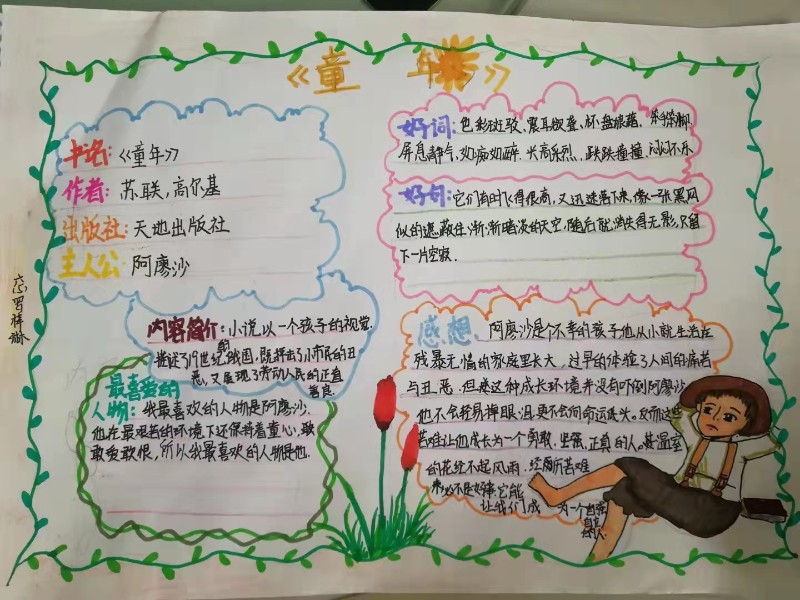 《童年》
书名:《童年》
作者:苏联,高尔基
出版社:天地出版社
主人公:阿廖沙
内容简介:小说以一个孩子的视觉.
描述了19世纪的俄国,既抨击了小市民的丑
恶,又展现了劳动人民的正直
善良.
最喜爱的
人物:我最喜欢的人物是阿廖沙.
他在最艰苦的环境下还保持着童心,敢
敢爱敢恨,所以我最喜欢的人物是他.
好词:色彩斑驳、震耳欲聋、杯盘狼藉、
屏息静气、如痴如碎、兴高采烈、跌跌撞撞、闷闷不乐
好句:它们有时飞得很高,又迅速落下来,像一张黑网
似的遮蔽住渐渐暗淡的天空,随后就消失得无影,只留
下一片空寂.
感想:阿廖沙是个不幸的孩子他从小就生活在
残暴无情的家庭里长大,过早的体验了人间的痛苦
与丑恶.但是这种成长环境并没有吓倒阿廖沙
他不会轻易掉眼泪更不会向命运低头.反而这些
苦难让他成长为一个勇敢、坚强、正真的人.温室
的花经不起风雨.经历所苦难
未必不是好事它能
让我们成为一个自强
的人.
六(3)罗梓琳